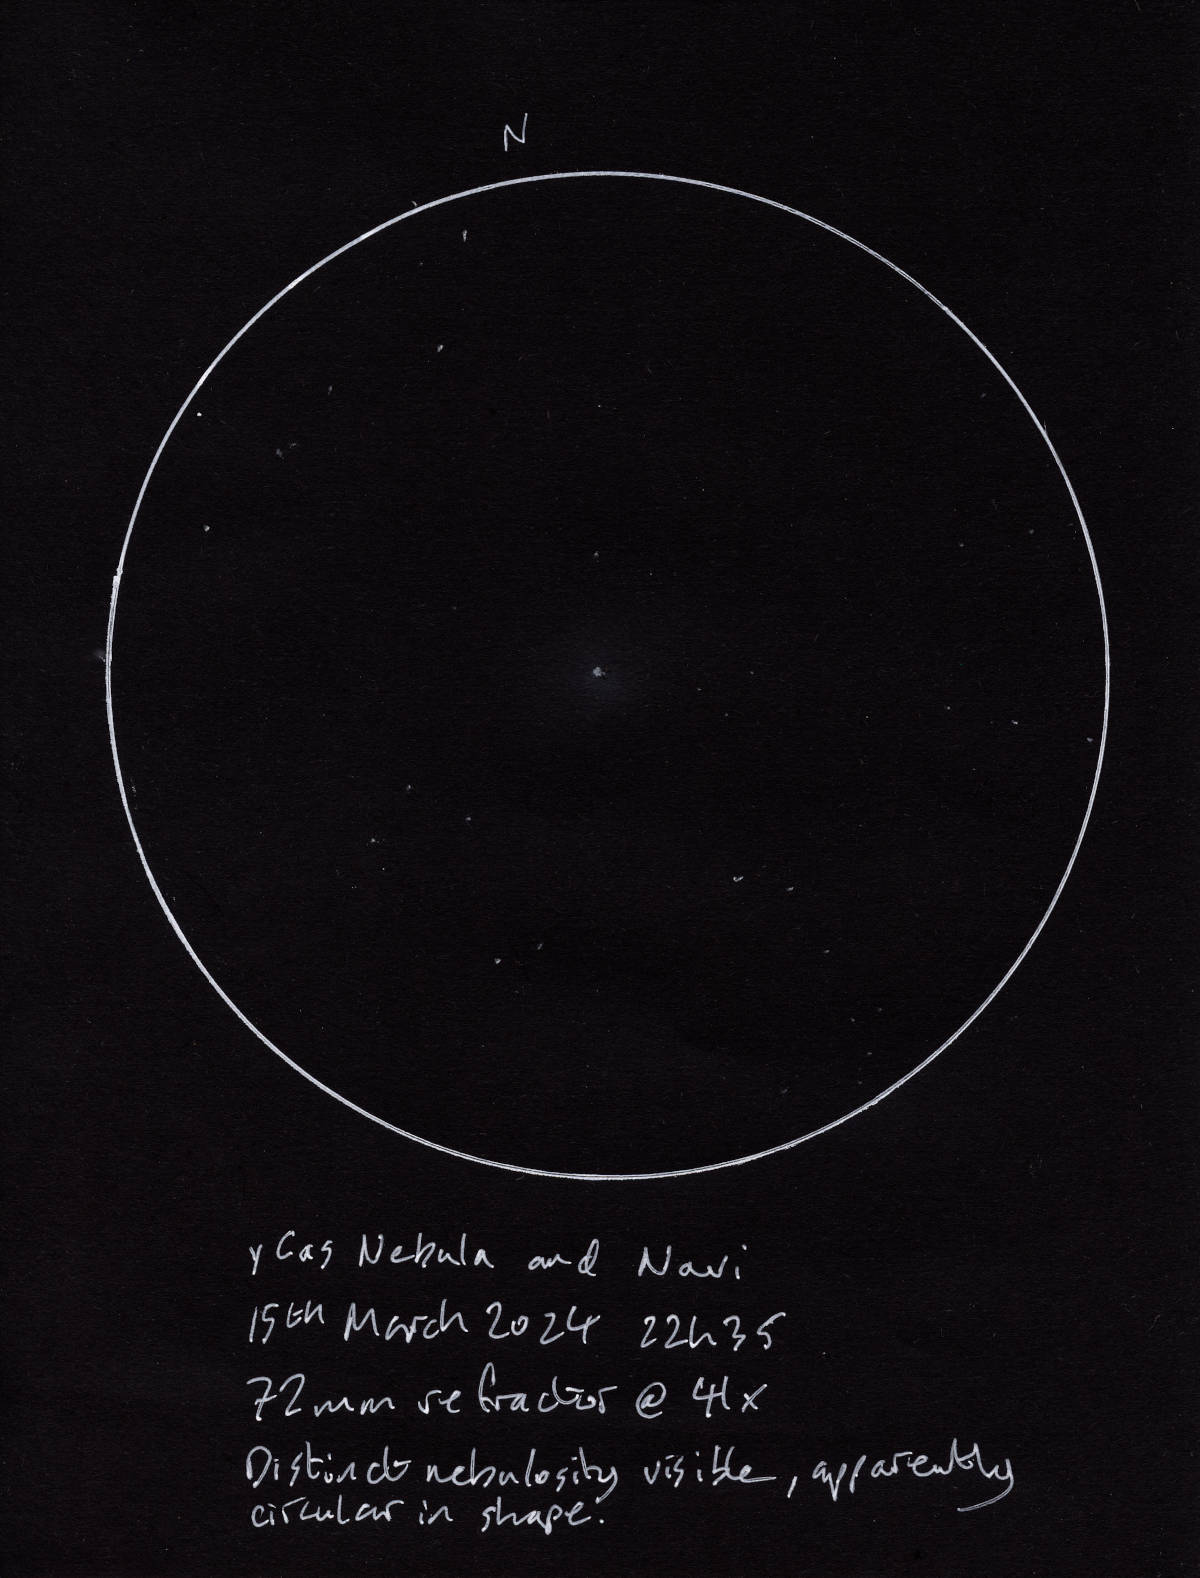 N
γ Cas Nebula and Navi
15th March 2024 22h35
72mm refractor @ 41x
Distinct nebulosity visible, apparently
circular in shape.